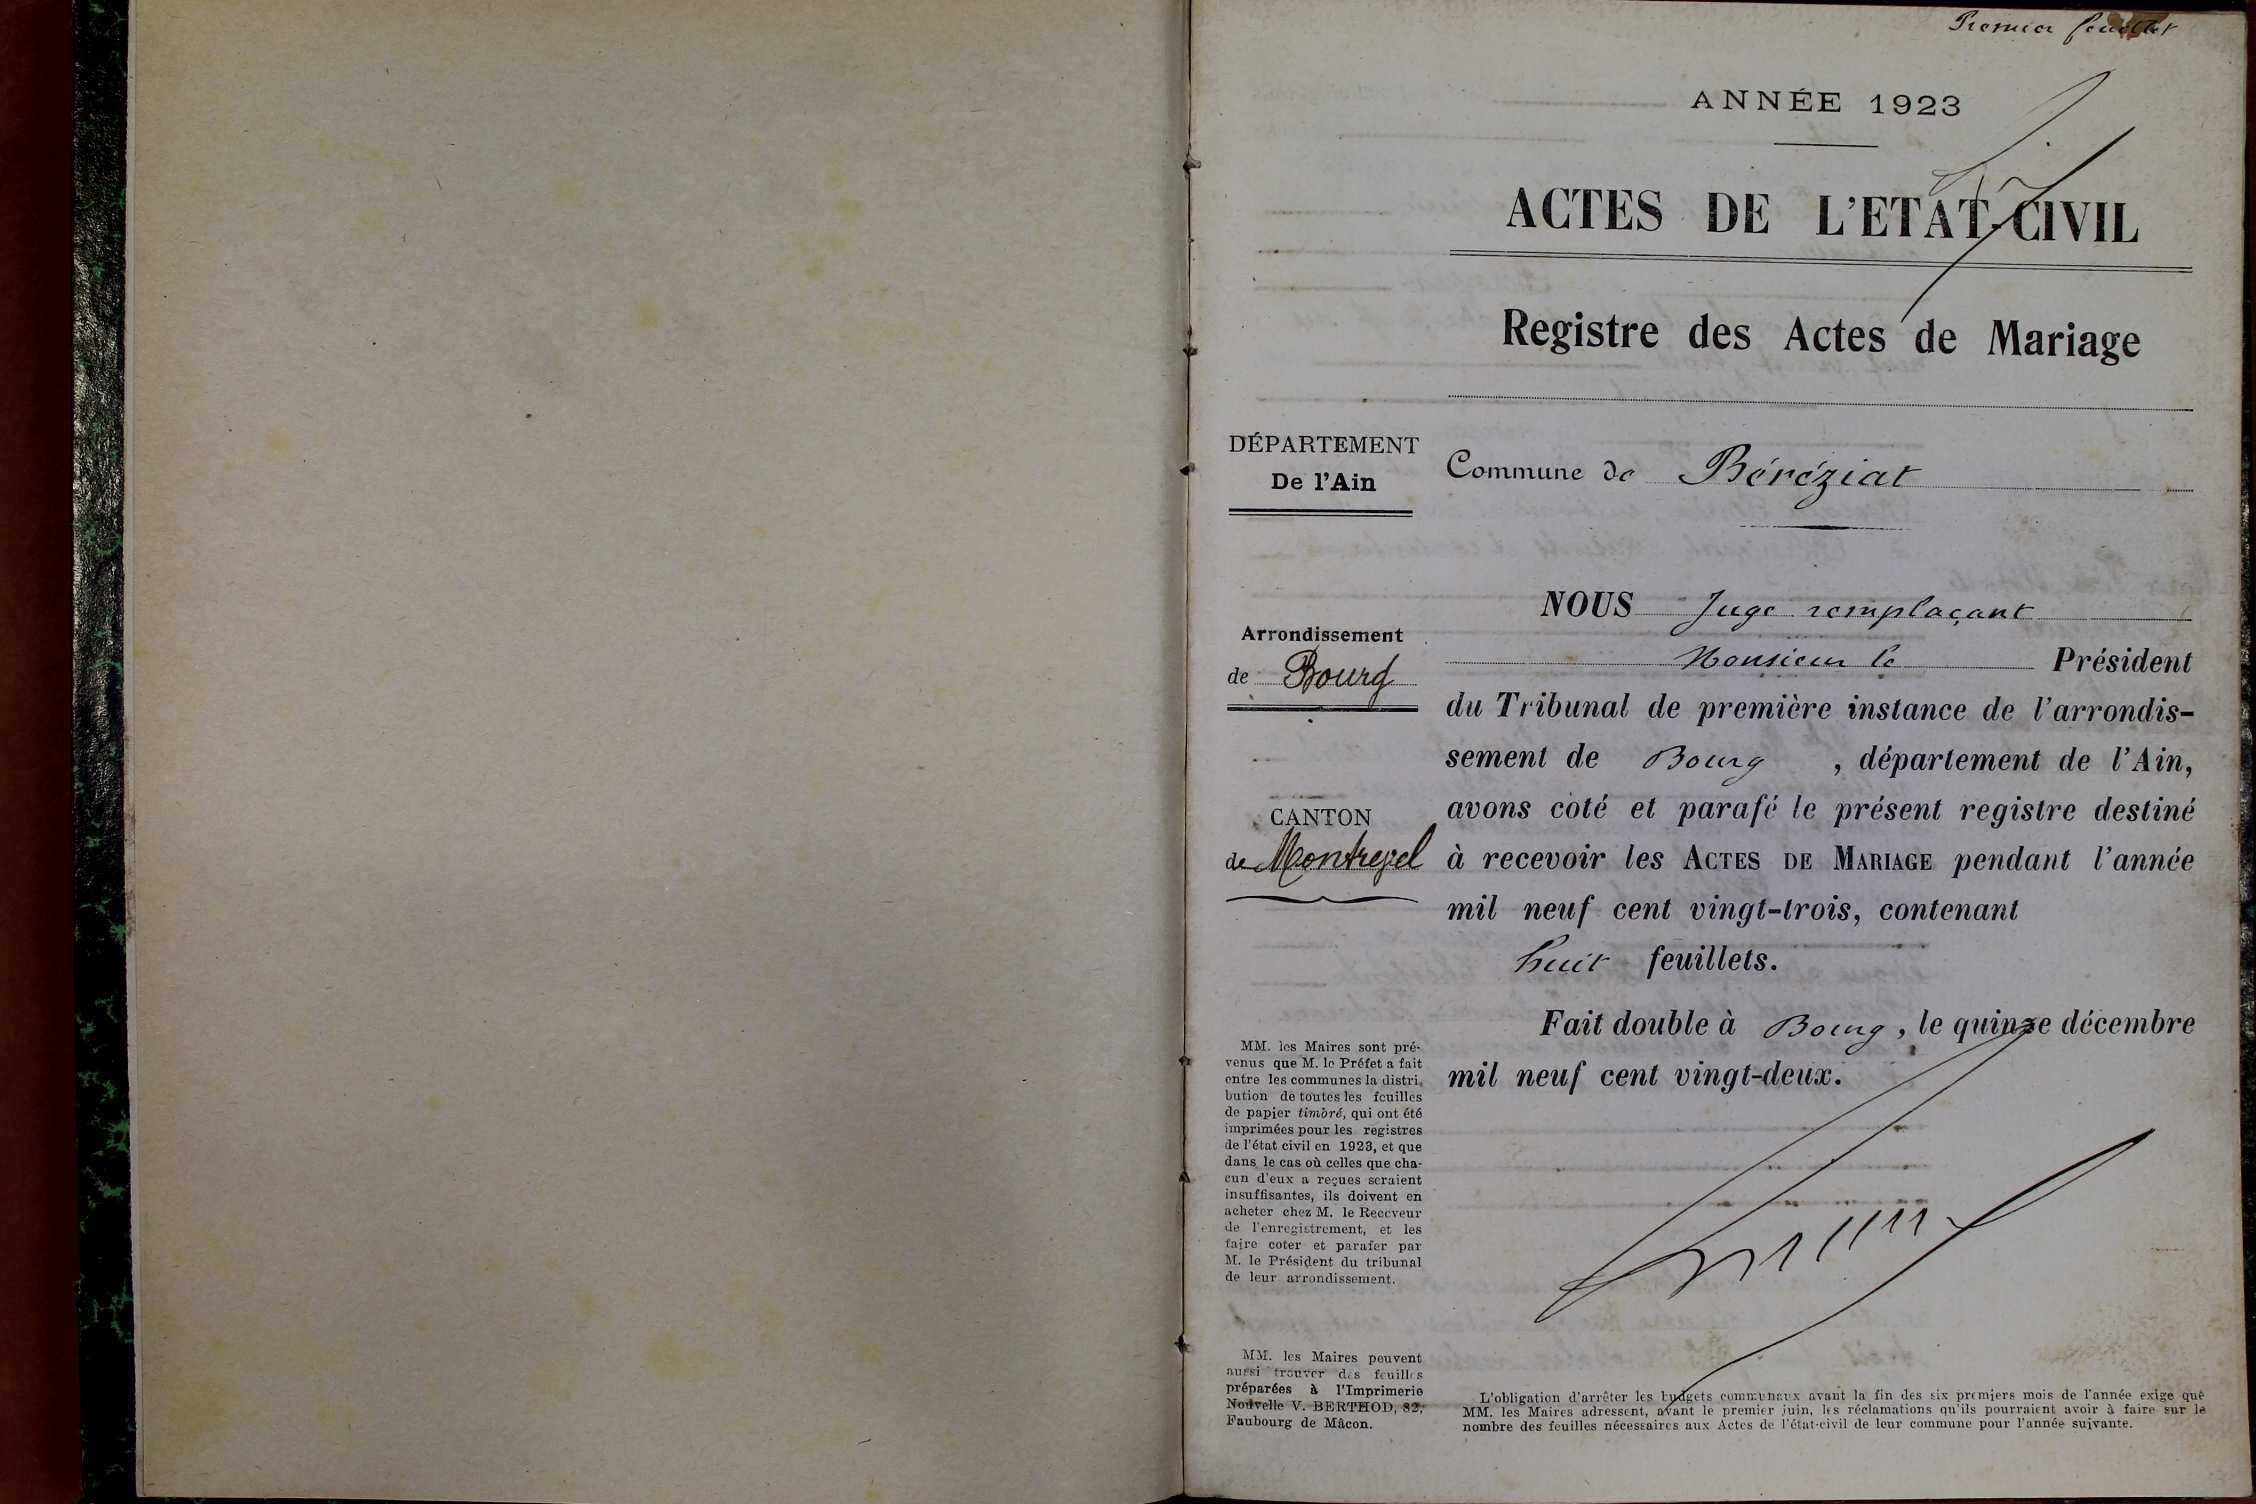 Premier feuillet
ANNÉE 1923
ACTES DE L'ETAT-CIVIL
Registre des Actes de Mariage
DÉPARTEMENT
De l'Ain
Commune de Béréziat
Arrondissement
de Bourg
CANTON
de Montrevel
NOUS Juge remplaçant
Monsieur le Président
du Tribunal de première instance de l'arrondis-
sement de Bourg , département de l'Ain,
avons coté et parafé le présent registre destiné
à recevoir les ACTES DE MARIAGE pendant l'année
mil neuf cent vingt-trois, contenant
huit feuillets.
Fait double à Bourg, le quinze décembre
mil neuf cent vingt-deux.
MM. les Maires sont pré-
venus que M. le Préfet a fait
entre les communes la distri-
bution de toutes les feuilles
de papier timbré, qui ont été
imprimées pour les registres
de l'état civil en 1923, et que
dans le cas où celles que cha-
cun d'eux a reçues seraient
insuffisantes, ils doivent en
acheter chez M. le Receveur
de l'enregistrement, et les
faire coter et parafer par
M. le Président du tribunal
de leur arrondissement.
MM. les Maires peuvent
aussi trouver des feuilles
préparées à l'Imprimerie
Nouvelle V. BERTHOD, 82,
Faubourg de Mâcon.
L'obligation d'arrêter les budgets communaux avant la fin des six premiers mois de l'année exige que
MM. les Maires adressent, avant le premier juin, les réclamations qu'ils pourraient avoir à faire sur le
nombre des feuilles nécessaires aux Actes de l'état-civil de leur commune pour l'année suivante.